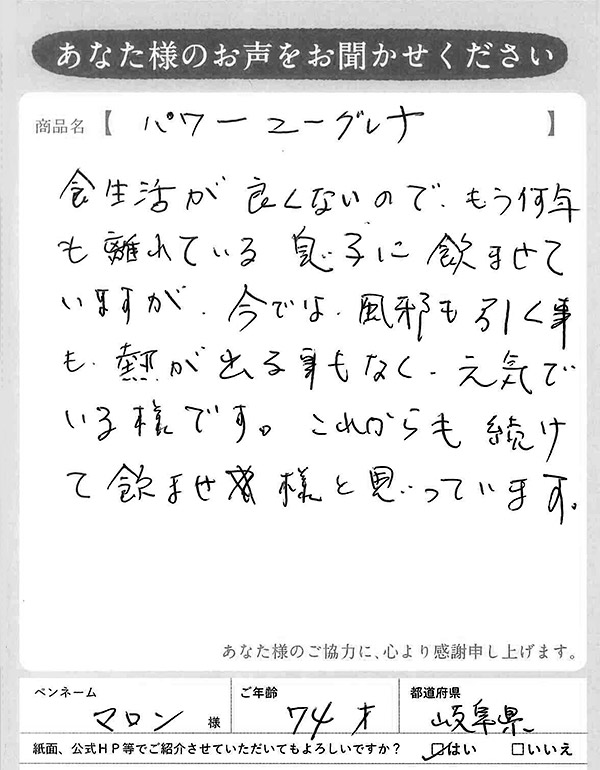 あなた様のお声をお聞かせください
商品名【 パワーユーグレナ 】
食生活が良くないので、もう何年
も離れている息子に飲ませて
いますが、今では、風邪も引く事
も、熱が出る事もなく、元気で
いる様です。これからも続け
て飲ませ様と思っています。
あなた様のご協力に、心より感謝申し上げます。
ペンネーム ご年齢 都道府県
マロン 様 74才 岐阜県
紙面、公式HP等でご紹介させていただいてもよろしいですか? ☑はい □いいえ